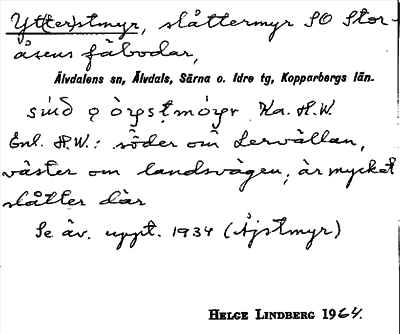 Yt(ter)stmyr, slåttermyr SO Stor-
åsens fäbodar,
Älvdalens sn, Älvdals, Särna o. Idre tg, Kopparbergs län.
Ka. H.W.
Enl. H.W.: söder om Lervallan,
väster om landsvägen; är mycket
slåtter där
Se äv. uppt. 1934 (Åjstmyr)
HELGE LINDBERG 1964.